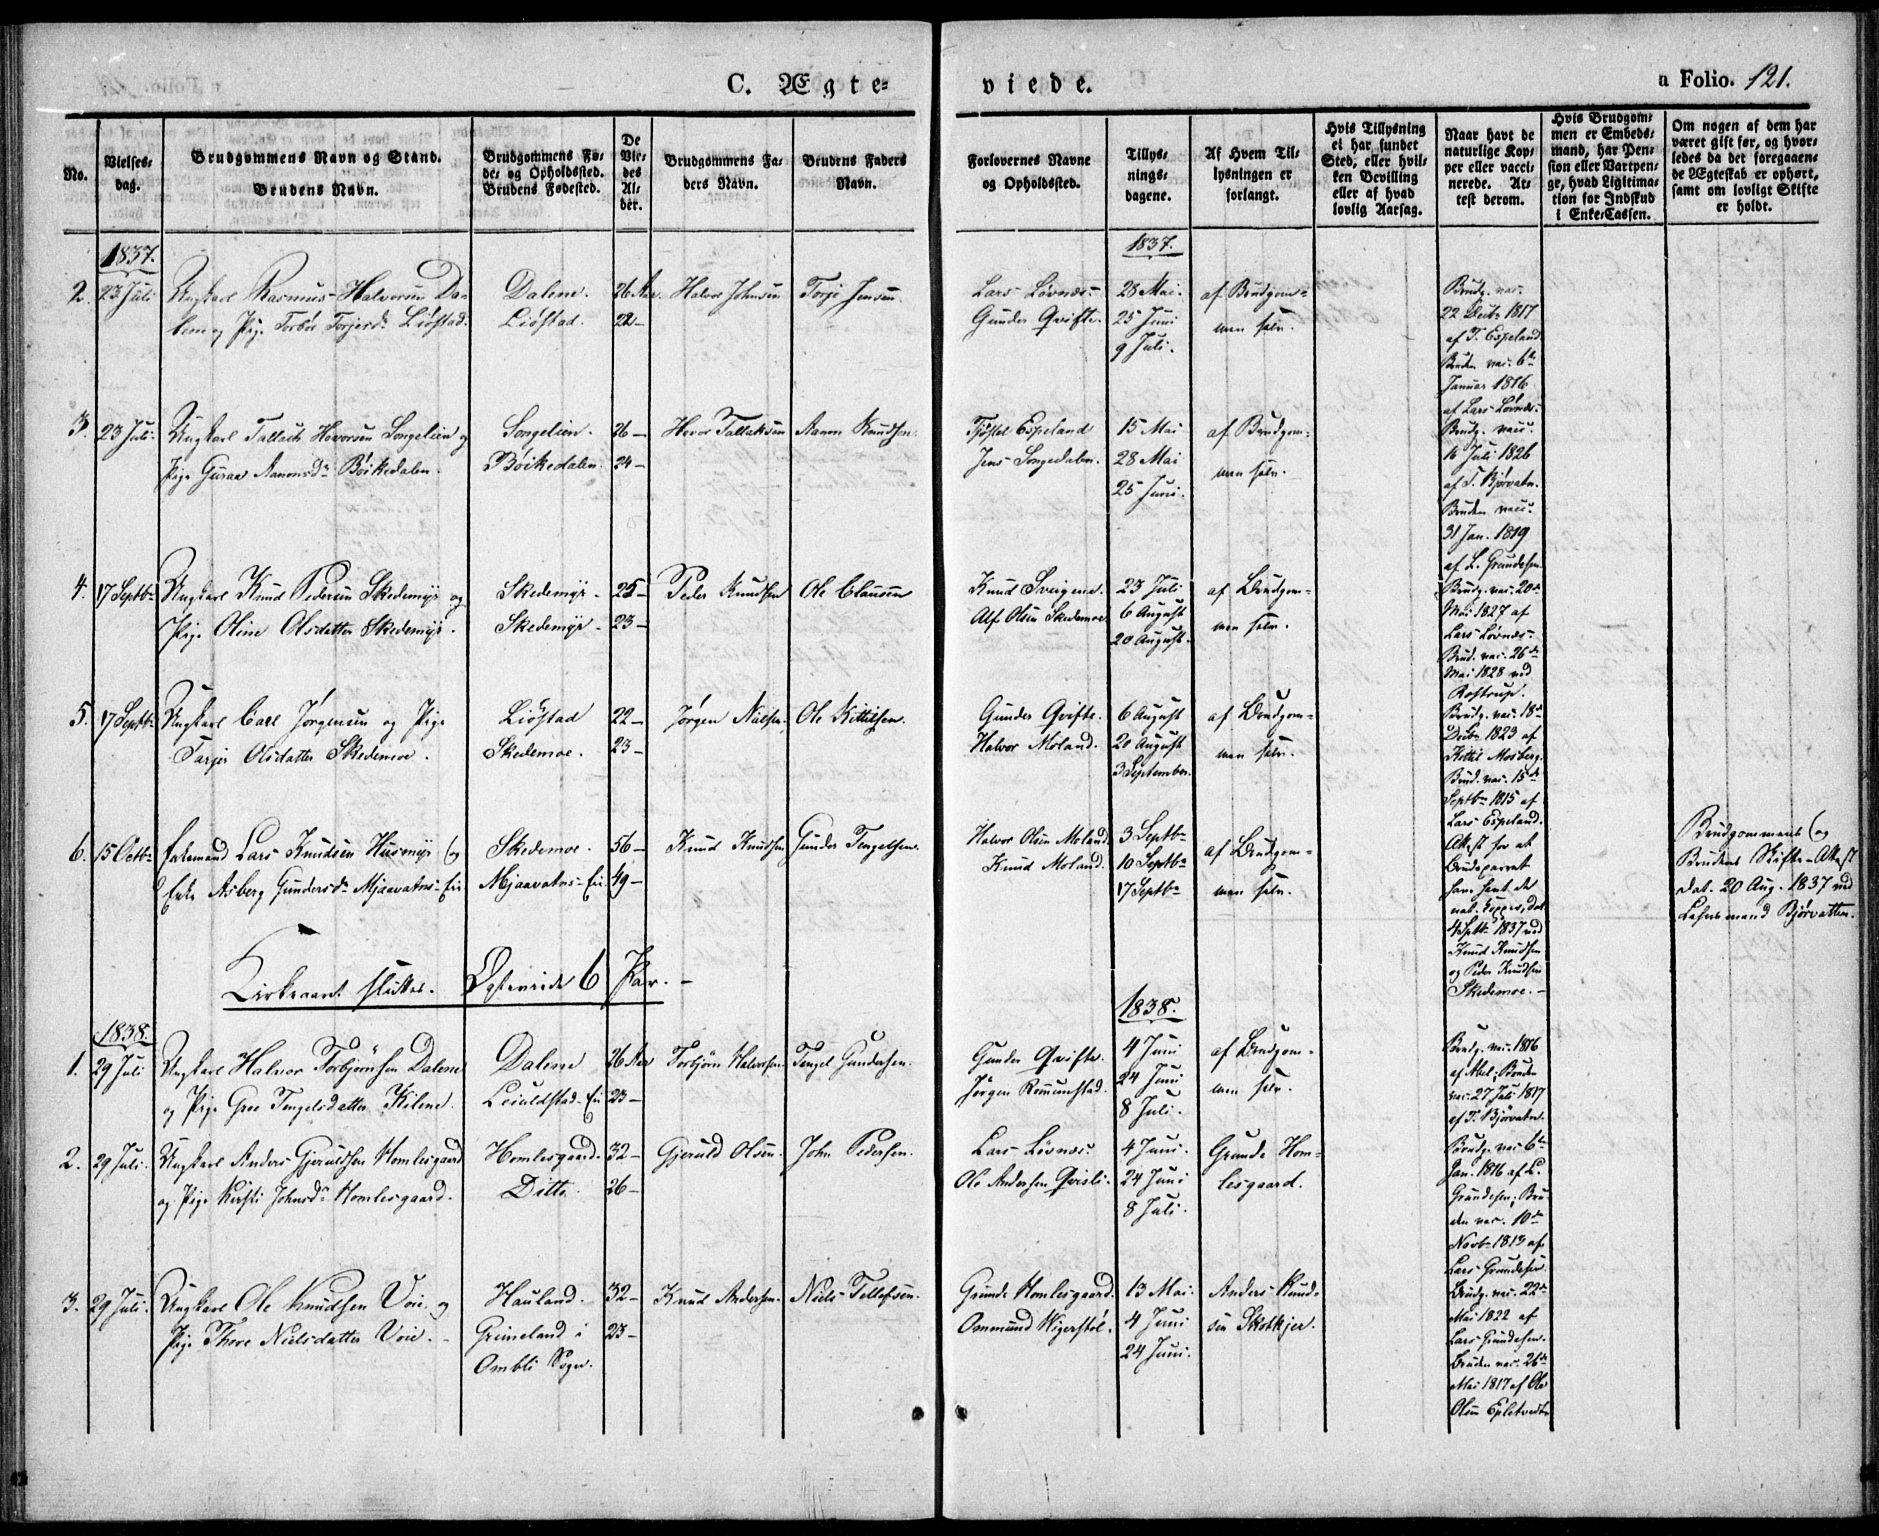 C. Ægte= viede.
a Folio. 121.
No.
Vielses=
dag.
Brudgommens Navn og Stand.
Brudens Navn.
Brudgommens Fø=
de= og Opholdssted.
Brudens Fødested.
De
Vie=
des
Al=
der.
Brudgommens Fa=
ders Navn.
Brudens Faders
Navn.
Forlovernes Navne
og Opholdssted.
Tillys=
nings=
dagene.
Af Hvem Til=
lysningen er
forlangt.
Hvis Tillysning
ei har fundet
Sted, eller hvil=
ken Bevilling
eller af hvad
lovlig Aarsag.
Naar havt de
naturlige Kop=
per eller vacci=
nerede. At=
test derom.
Hvis Brudgom=
men er Embeds=
mand, har Pen=
sion eller Vartpen=
ge, hvad Ligitima=
tion for Indskud
i Enke=Cassen.
Om nogen af dem har
været gift før, og hvor=
ledes da det foregaaen=
de Ægteskab er ophørt,
samt om lovligt Skifte
er holdt.
1837.
2. 23 Juli
Ungkarl Rasmus Halvorsen Da=
len og Pige Torbør Torjersd. Liøstad.
Dalene.
Liøstad.
26 Aar
22 –
Halvor Johnsen
Torje Jensen
Lars Løvnæs
Gunder Qvifte.
1837.
28 Mai.
25 Juni
9 Juli.
af Brudgom=
men selv.
Brudg. vac.
22 Decbr 1817
af T. Espeland
Bruden vac. 6te
Januar 1816
af Lars Løvnæs.
3. 23 Juli.
Ungkarl Tallack Hovorsen Songelien og
Pige Guraa Aanonsdr Bøikedalen.
Songelien.
Bøikedalen.
26 –
24 –
Hovor Tallaksen
Aanon Knudsen
Tjøstel Espeland
Jens Songedalen.
15 Mai
28 Mai
25 Juni.
af Brudgom=
men selv.
Brudg. vacc.
Juli 1826
af T. Bjørvatn.
Bruden vacc.
31 Jan. 1819
af L. Grundesen.
4. 17 Septbr
Ungkarl Knud Pedersen Skedemyr og
Pige Oline Olsdatter Skedemyr.
Skedemyr –
Skedemyr –
25 –
23 –
Peder Knudsen
Ole Clausen
Knud
Alf Olsen Skedemoe
23 Juli
6 August
20 August.
af Brudgom=
men selv.
Brudg. vac. 20de
Mai 1827 af
Lars Løvnæs.
Brud. vac. 26de
Mai 1828 ved
Rostrup.
5. 17 Septbr
Ungkarl Carl Jørgensen og Pige
Olsdatter Skedemoe.
Liøstad
Skedemoe.
22 –
23 –
Jørgen Nielsen
Ole Kittilsen.
Gunder Qvifte.
Halvor Moland.
6 August
20 August
3 September.
af Brudgom=
men selv.
Brudg. vac. 18de
Decbr 1823 af
Kittil Mosberg.
Brud. vac. 15de
Septbr 1815 af
Lars Espeland.
6. 15 Octbr
Enkemand Lars Knudsen Husmyr og
Enke Asberg Gundersdr Mjaavatns-Eie
Skedemoe.
Mjaavatns-Eie
56 –
49 –
Knud Knudsen
Gunder Tengelsen.
Halvor Olsen Moland
Knud Moland.
3 Septbr
10 Septbr
17 Septbr
af Brudgom=
men selv.
Attest for at
Brudeparret
have havt de
nat. Kopper, dat.
4 Septbr 1837 ved
Knud Knudsen
og Peder Knudsen
Skedemoe. –
Brudgommens og
Brudens Skifte-Attest
dat. 20 Aug. 1837 ved
Lehnsmand Bjørvatten.
Kirkeaaret sluttes. Egteviede 6 Par. –
1838.
1. 29 Juli
Ungkarl Halvor Torbjørnsen Dalene
og Pige Groe Tengelsdatter Kilene.
Dalene
Leiuldstad-Eie
26 Aar
23 –
Torbjørn Halvorsen
Tengel Gundersen.
Gunder Qvifte.
Jørgen Rønnunstad.
1838.
4 Juni
24 Juni
8 Juli.
af Brudgom=
men selv.
Brudg. vac. 1816
af Abel; Bruden
vac. 27 Juli 1817
af T. Bjørvatn.
2. 29 Juli.
Ungkarl Anders Gjeruldsen Homlesgaard
og Pige Kirsti Johnsdr Homlesgaard.
Homlesgaard.
Ditto.
32 –
26 –
Gjeruld Olsen
John Pedersen.
Lars Løvnæs.
Ole Andersen Qvisli.
4 Juni.
24 Juni
8 Juli.
Grunde Hom=
lesgaard.
Brudg. vac. 6te
Jan. 1816 af L.
Grundesen; Bru=
den vac. 10de
Novbr 1813 af
Lars Grundesen.
3. 29 Juli.
Ungkarl Ole Knudsen Voie og
Pige Thore Nielsdatter Voie. –
Hauland.
Grimeland i
Ombli Sogn.
32 –
23 –
Knud Andersen.
Niels Tellefsen.
Grunde Homlesgaard.
Ommund Wigerstøl.
13 Mai.
4 Juni
24 Juni.
Anders Knud=
sen Skotkjer.
Brudg. vac. 22de
Mai 1822 af
Lars Grundesen.
Bruden vac. 26de
Mai 1817 af Ole
Olsen Epletvedt.